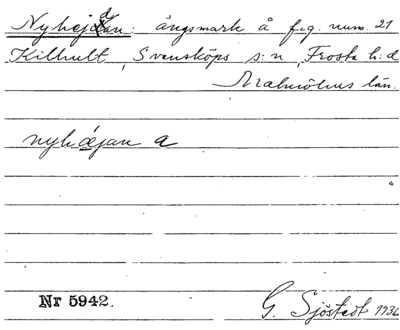 Nyhejdan: ängsmark å fig. num. 21
Kilhult, Svensköps s:n, Frosta h:d
Malmöhus län.
nyhæjan a
Nr 5942.
G. Sjöstedt 1936